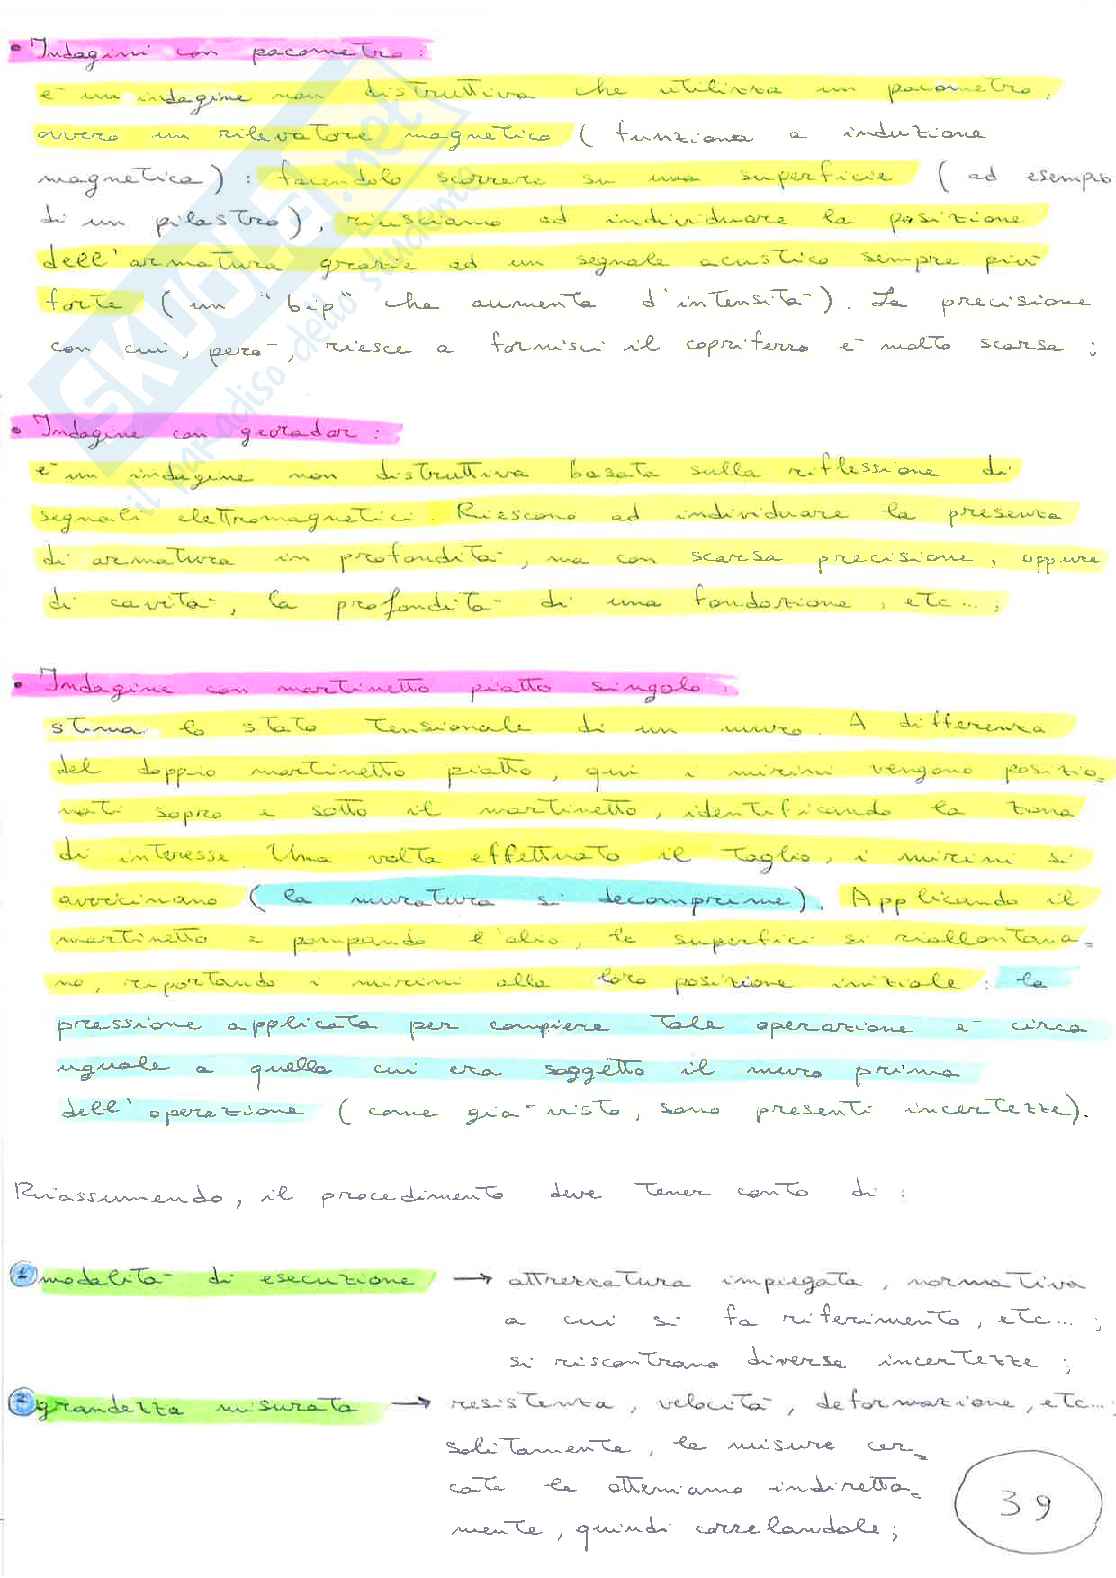 • Indagini con pacometro:
è un indagine non distruttiva che utilizza un pacometro,
ovvero un rilevatore magnetico (funziona a induzione
magnetica): facendolo scorrere su una superficie (ad esempio
di un pilastro), riusciamo ad individuare la posizione
dell'armatura grazie ad un segnale acustico sempre più
forte (un "bip" che aumenta d'intensità). La precisione
con cui, però, riesce a fornirci il copriferro è molto scarsa;
• Indagine con georadar:
è un indagine non distruttiva basata sulla riflessione di
segnali elettromagnetici. Riescono ad individuare la presenza
di armatura in profondità, ma con scarsa precisione, oppure
di cavità, la profondità di una fondazione, etc...;
• Indagine con martinetto piatto singolo:
stima lo stato tensionale di un muro. A differenza
del doppio martinetto piatto, qui i mirini vengono posizio=
nati sopra e sotto il martinetto, identificando la zona
di interesse. Una volta effettuato il taglio, i mirini si
avvicinano (la muratura si decomprime). Applicando il
martinetto e pompando l'olio, le superfici si riallontana=
no, riportando i mirini alla loro posizione iniziale: la
pressione applicata per compiere tale operazione è circa
uguale a quella cui era soggetto il muro prima
dell'operazione (come già visto, sono presenti incertezze).
Riassumendo, il procedimento deve tener conto di:
1 modalità di esecuzione → attrezzatura impiegata, normativa
a cui si fa riferimento, etc...;
si riscontrano diverse incertezze;
2 grandezza misurata → resistenza, velocità, deformazione, etc...;
solitamente, le misure cer=
cate le otteniamo indiretta=
mente, quindi correlandole;
39
SKUOLA.net
il paradiso dello studente